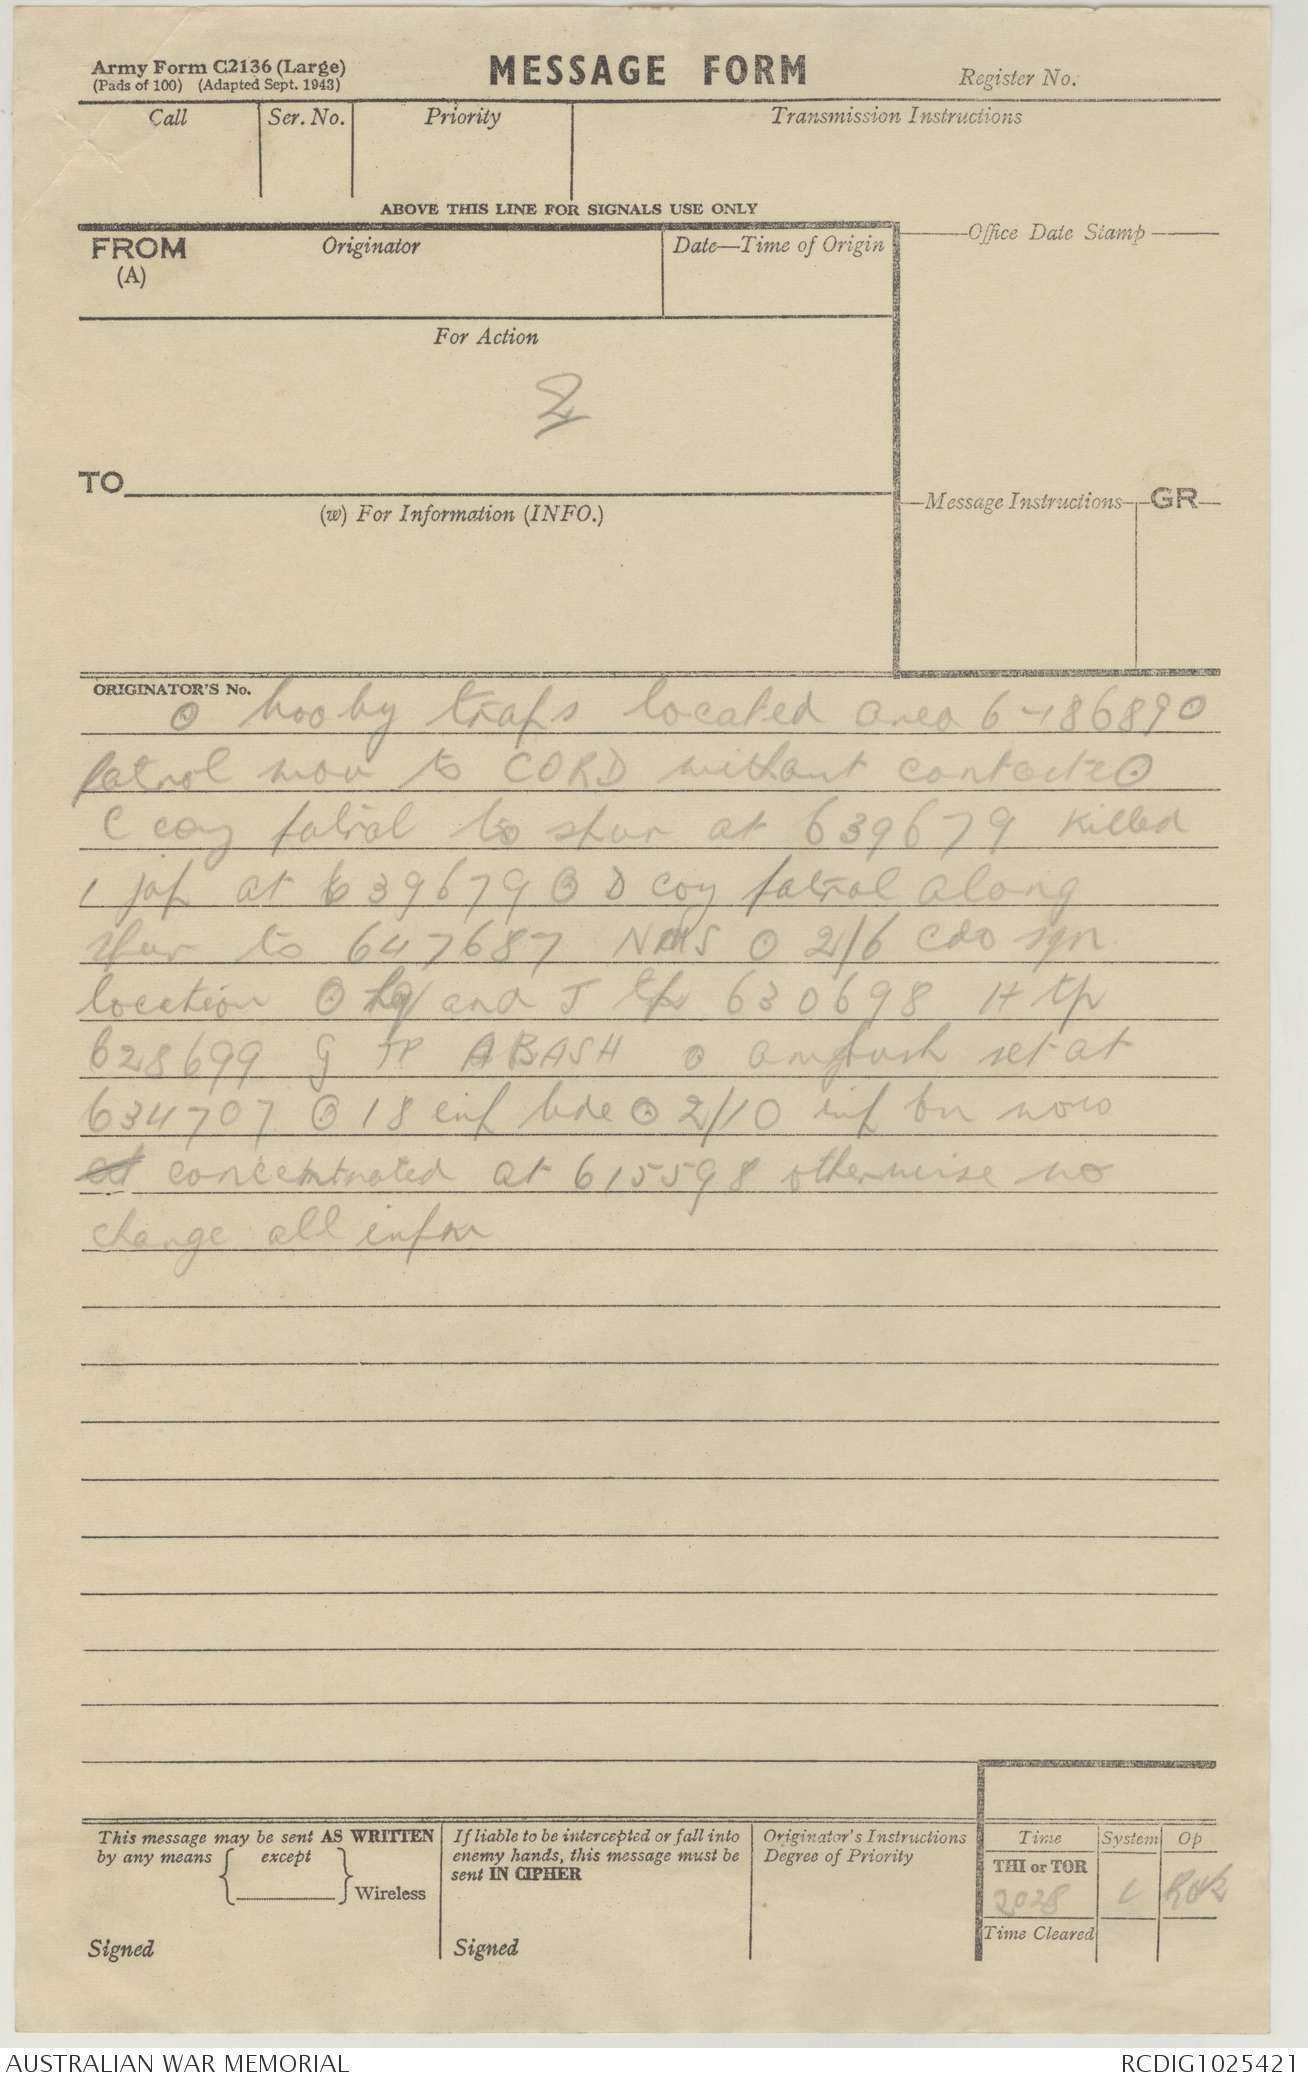 Army Form C2136 (Large)
(Pads of 100) (Adapted Sept. 1943)
MESSAGE FORM
Register No.
Call
Ser. No.
Priority
Transmission Instructions
ABOVE THIS LINE FOR SIGNALS USE ONLY
FROM
(A)
Originator
Date—Time of Origin
Office Date Stamp
For Action
2
TO
(w) For Information (INFO.)
Message Instructions
GR
ORIGINATOR'S No.
⊙ booby traps located area 6 ⊙
patrol mov to CORD without contact ⊙
C coy patrol to spur at 639679 killed
1 jap at 639679 ⊙ D coy patrol along
spur to 647687 NMS ⊙ 2/6 cdo sqn
location ⊙ hq and J tp 630698 H tp
628699 G TP ABASH ⊙ ambush set at
634707 ⊙ 18 inf bde ⊙ 2/10 inf bn now
at concentrated at 615598 otherwise no
change all infm
This message may be sent AS WRITTEN
by any means { except }
Wireless
Signed
If liable to be intercepted or fall into
enemy hands, this message must be
sent IN CIPHER
Signed
Originator's Instructions
Degree of Priority
Time
System
Op
THI or TOR
2028
Time Cleared
AUSTRALIAN WAR MEMORIAL
RCDIG1025421